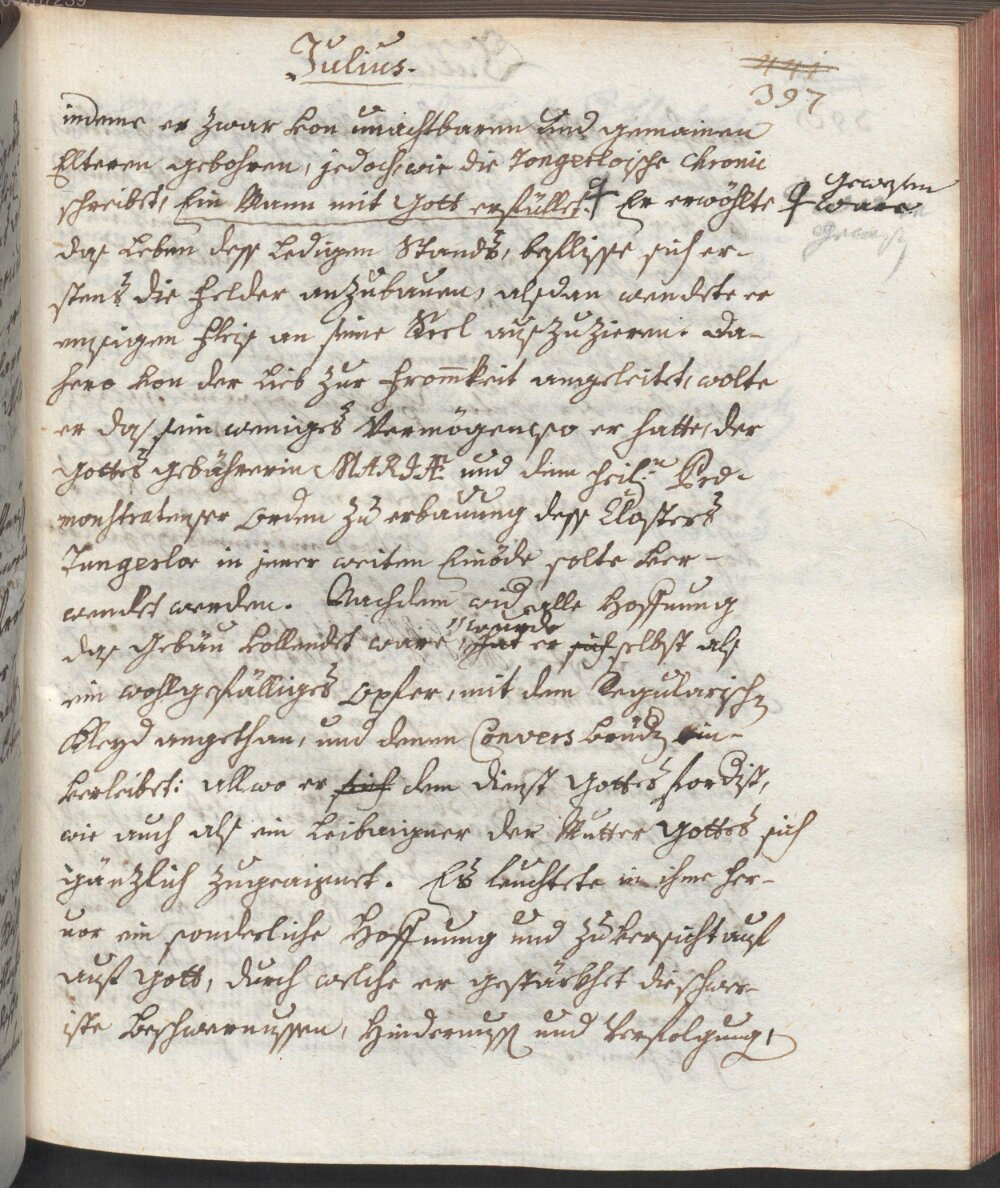 Julius.
441
397
indeme er zwar von unachtbaren und gemainen
Elteren gebohren, jedoch, wie die Tongerloische Chronic
schreibet, Ein Mann mit Gott erfüllet. Er erwöhlte
gewesen
ware
das Leben dess Ledigen Stands, beflisse sich er-
stens die Felder anzubauen, alsdan wendete er
emsigen Fleis an seine Seel auszuzieren. Da-
hero von der Lieb zur Frommkeit angeleitet, wolte
er das sein weniges Vermögen, so er hatte, der
Gottes Gebährerin MARIAE und dem heil:n Præ-
monstratenser Orden zu erbauung dess Closters
Tungerloe in jener weiten Einöde solte ver-
wendet werden. Nachdem wid alle Hoffnung
wurde
das Gebäu vollendet ware, hat er sich selbst als
ein wohlgefälliges Opfer, mit dem Regularischen
Kleyd angethan, und denen Convers Brüd ein-
verleibet: allwo er sich dem Dienst Gottes fordist,
wie auch als ein Leibaigner der Mutter Gottes sich
gänzlich zugeaignet. Es leuchtete in ihme her-
vor ein sonderliche Hoffnung und Zuversicht auf
auf Gott, durch welche er gestärckhet die schwer-
iste Beschwernussen, Hindernuss und Verfolgung,